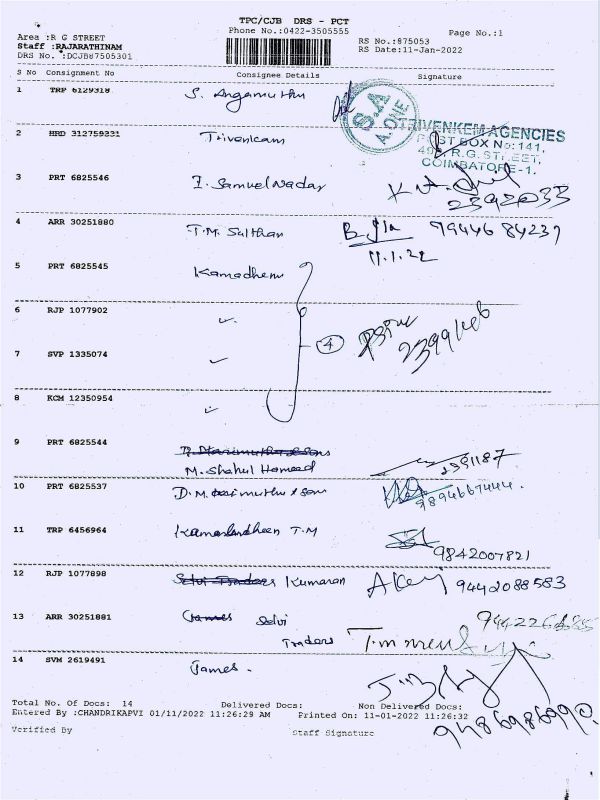 TPC/CJB DRS - PCT
Phone No.:0422-3505555
Page No.:1
Area :R G STREET
Staff :RAJARATHINAM
DRS No. :DCJB87505301
RS No.:875053
RS Date:11-Jan-2022
S No Consignment No Consignee Details Signature
1 TRP 6129318 S. Angamuthu
S.A A.ONE
TRIVENKEM AGENCIES
POST BOX No:141,
R.G. STREET,
COIMBATORE-1.
2 HRD 312759231 Trivenkam
3 PRT 6825546 I. Samuel Nadar
2392033
4 ARR 30251880 T.M. Sulthan 99446 84237
11.1.22
5 PRT 6825545 Kamadhenu
6 RJP 1077902 ✓
4
7 SVP 1335074 ✓
8 KCM 12350954 ✓
9 PRT 6825544
M. Shahul Hameed 2391187
10 PRT 6825537 D.M. & Sons 9894667444.
11 TRP 6456964 T.M
9842007821
12 RJP 1077898 Selvi Traders Kumaran 9442088583
13 ARR 30251881 James Selvi
Traders
14 SVM 2619491 James.
9486986990
Total No. Of Docs: 14 Delivered Docs: Non Delivered Docs:
Entered By :CHANDRIKAPVI 01/11/2022 11:26:29 AM Printed On: 11-01-2022 11:26:32
Verified By Staff Signature